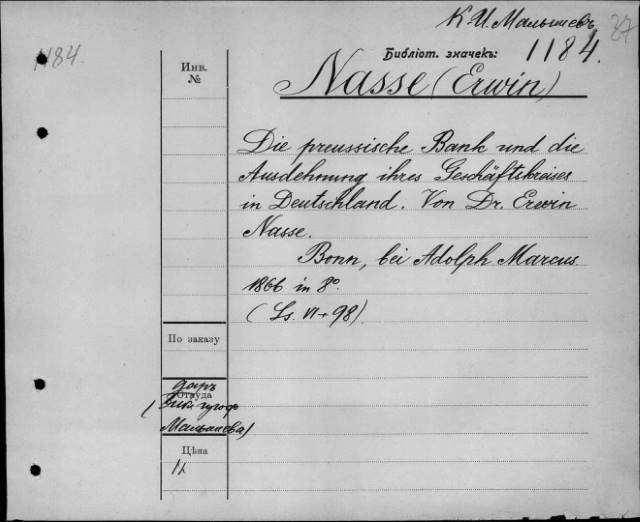 К. И. Малышевъ
27
1184.
Библіот. значекъ: 1184.
Инв.
№
Nasse (Erwin)
Die preussische Bank und die
Ausdehnung ihres Geschäftskreises
in Deutschland. Von Dr. Erwin
Nasse.
Bonn, bei Adolph Marcus.
1866 in 8°.
(Ss. VI + 98)
По заказу
даръ
Откуда
Малышева)
Цѣна